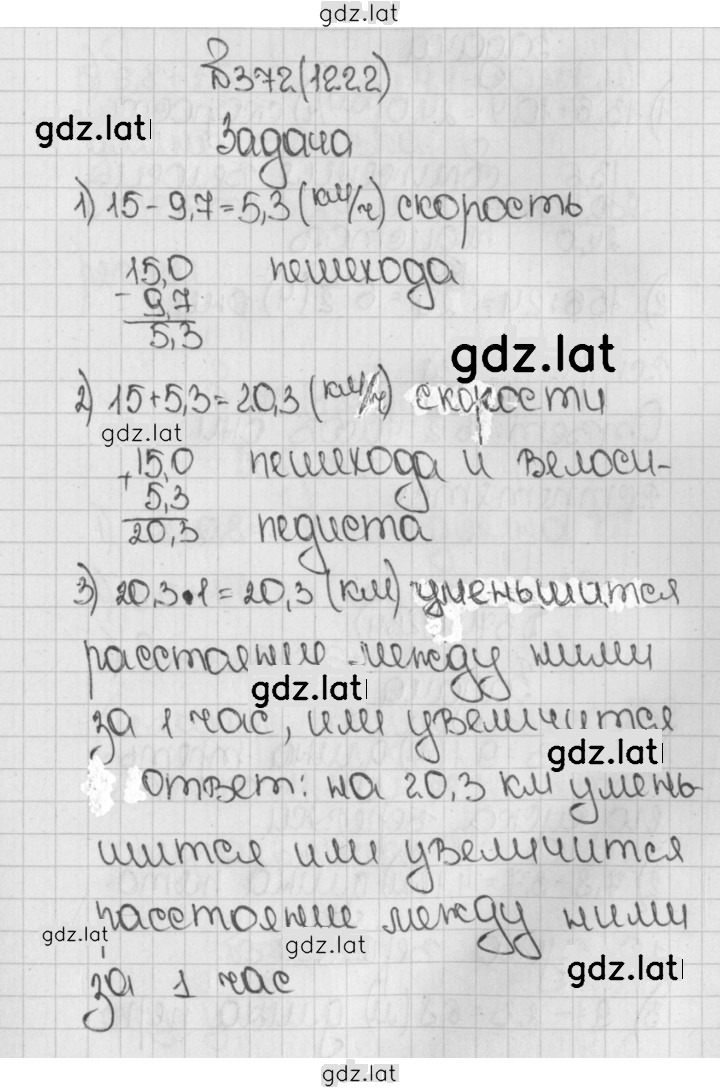 gdz.lat
№372(1222)
gdz.lat
Задача
1) 15 - 9,7 = 5,3 (км/ч) скорость
15,0 пешехода
- 9,7
5,3
gdz.lat
2) 15 + 5,3 = 20,3 (км/ч) скорости
gdz.lat
15,0 пешехода и велоси-
+ 5,3
20,3 педиста
3) 20,3 • 1 = 20,3 (км) уменьшится
расстояние между ними
gdz.lat
за 1 час, или увеличится
gdz.lat
Ответ: на 20,3 км умень-
шится или увеличится
расстояние между ними
gdz.lat
gdz.lat
gdz.lat
за 1 час
gdz.lat